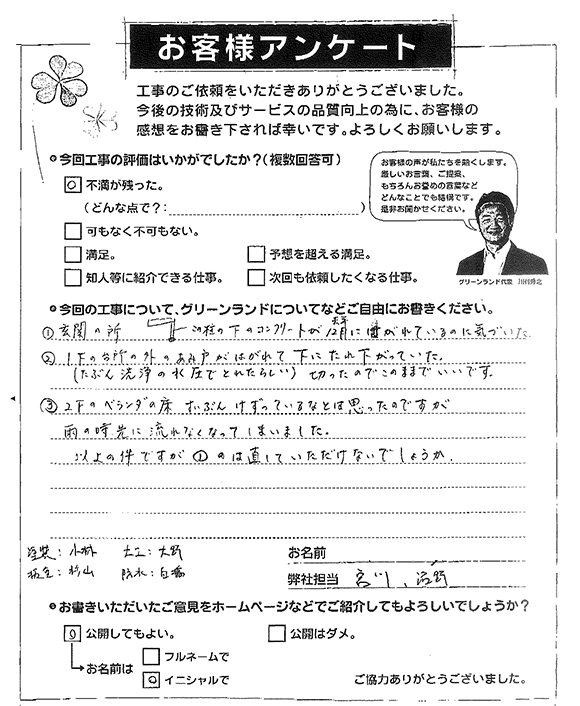 お客様アンケート
工事のご依頼をいただきありがとうございました。
今後の技術及びサービスの品質向上の為に、お客様の
感想をお書き下されば幸いです。よろしくお願いします。
今回工事の評価はいかがでしたか?(複数回答可)
不満が残った。
(どんな点で?: )
可もなく不可もない。
満足。
予想を超える満足。
知人等に紹介できる仕事。
次回も依頼したくなる仕事。
お客様の声が私たちを動かします。
厳しいお言葉、ご提案、
もちろんお誉めの言葉など
どんなことでも結構です。
是非お聞かせください。
グリーンランド代表
今回の工事について、グリーンランドについてなどご自由にお書きください。
① 玄関の所 この柱の下のコンクリートが がれているのに気づいた
② 1下の台所の外のあみ戸がはがれて下にたれ下がっていた。
(たぶん洗浄の水圧でとれたらしい) 切ったのでこのままでいいです。
③ 2下のベランダの床 ずいぶんけずっているなとは思ったのですが
雨の時先に流れなくなってしまいました。
以上の件ですが①のは直していただけないでしょうか。
塗装:小林 大工:大野
板金:杉山 防水:
お名前
弊社担当 宮川、
お書きいただいたご意見をホームページなどでご紹介してもよろしいでしょうか?
公開してもよい。
公開はダメ。
お名前は
フルネームで
イニシャルで
ご協力ありがとうございました。